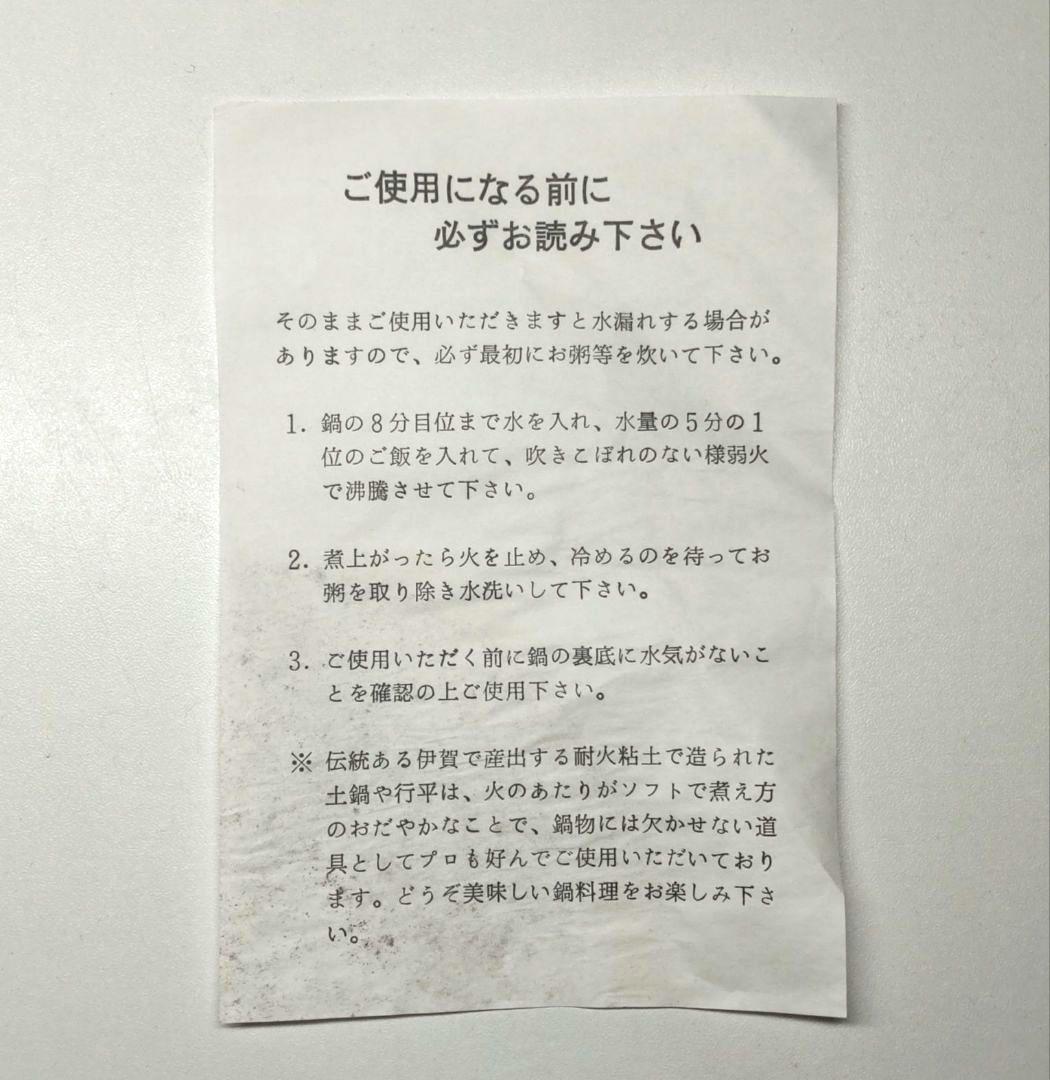 ご使用になる前に
必ずお読み下さい
そのままご使用いただきますと水漏れする場合が
ありますので、必ず最初にお粥等を炊いて下さい。
1. 鍋の8分目位まで水を入れ、水量の5分の1
位のご飯を入れて、吹きこぼれのない様弱火
で沸騰させて下さい。
2. 煮上がったら火を止め、冷めるのを待ってお
粥を取り除き水洗いして下さい。
3. ご使用いただく前に鍋の裏底に水気がないこ
とを確認の上ご使用下さい。
※ 伝統ある伊賀で産出する耐火粘土で造られた
土鍋や行平は、火のあたりがソフトで煮え方
のおだやかなことで、鍋物には欠かせない道
具としてプロも好んでご使用いただいており
ます。どうぞ美味しい鍋料理をお楽しみ下さ
い。